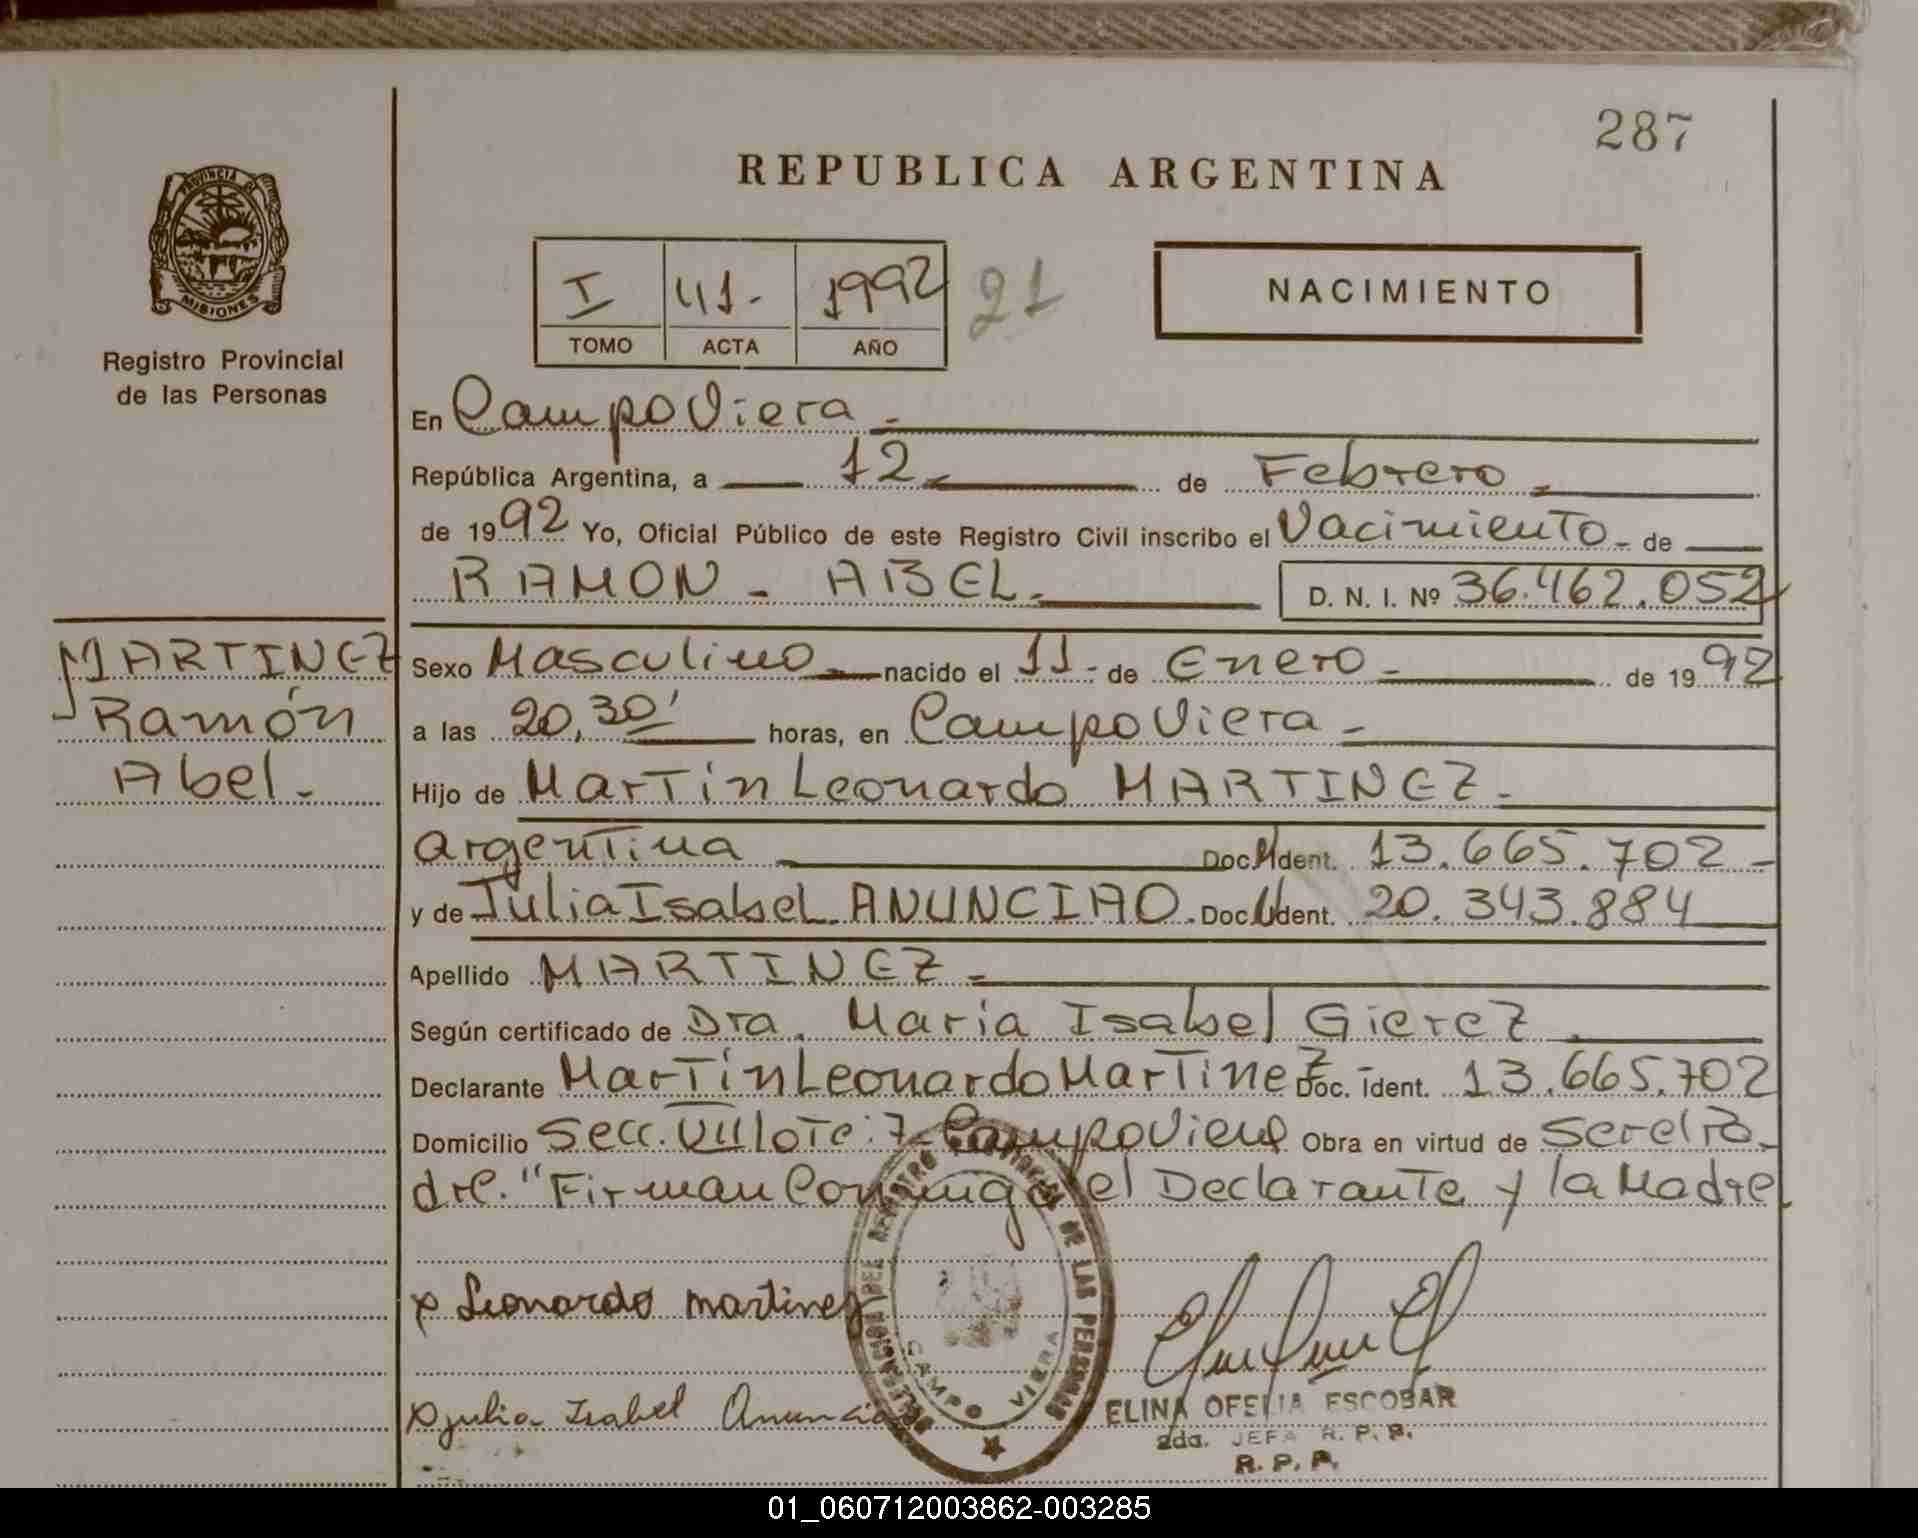 287
REPUBLICA ARGENTINA
PROVINCIA DE
MISIONES
Registro Provincial
de las Personas
I 41- 1992 21
TOMO ACTA AÑO
NACIMIENTO
En Campo Viera -
República Argentina, a 12 - de Febrero -
de 1992 Yo, Oficial Público de este Registro Civil inscribo el Nacimiento - de
RAMON - ABEL - D. N. I. Nº 36.462.052
MARTINEZ
Ramón
Abel -
Sexo Masculino - nacido el 11 - de Enero - de 1992
a las 20,30' horas, en Campo Viera -
Hijo de Martín Leonardo MARTINEZ -
argentina Doc. Ident. 13.665.702 -
y de Julia Isabel ANUNCIAO. Doc. Ident. 20.343.884
Apellido MARTINEZ -
Según certificado de Dra. María Isabel Gierez
Declarante Martín Leonardo Martinez Doc. Ident. 13.665.702
Domicilio Secc. VII Lote: 7 - Campo Viera Obra en virtud de
"Firman Conmigo el Declarante y la Madre
x Leonardo martinez
x Julia Isabel Anunciao
DELEGACION DEL REGISTRO PROVINCIAL DE LAS PERSONAS
CAMPO VIERA
ELINA OFELIA ESCOBAR
2da. JEFA R. P. P.
R. P. P.
01_060712003862-003285